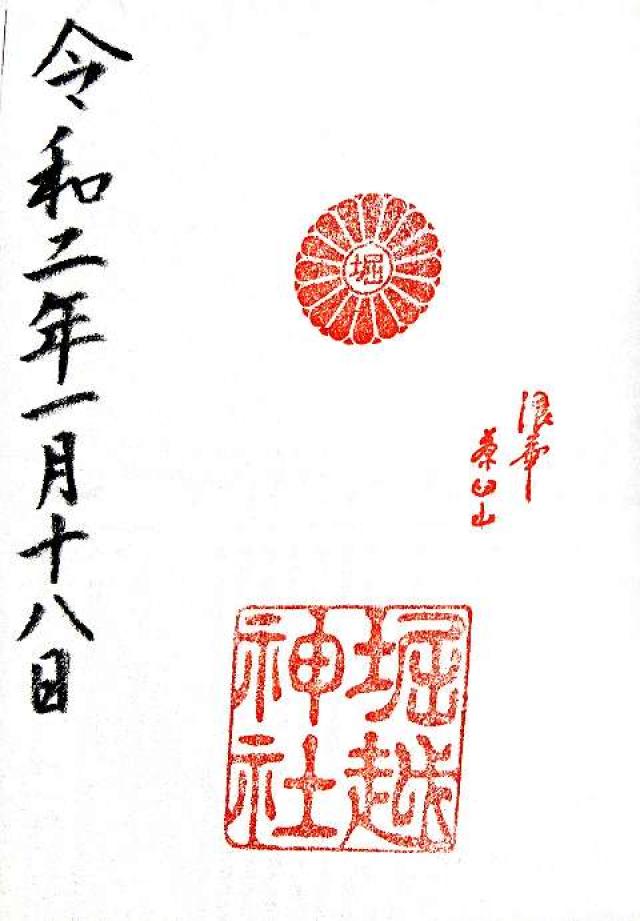 堀
浪華
茶臼山
堀越
神社
令和二年一月十八日